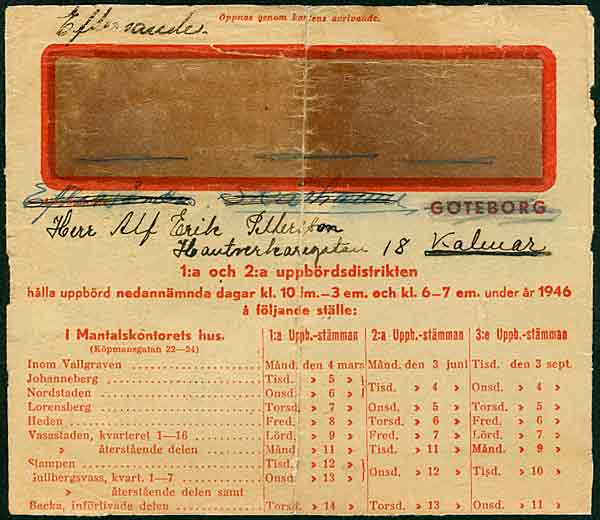 Öppnas genom kantens avrivande.
Eftersände.
GÖTEBORG
Herr Alf Erik
Hantverkaregatan 18 Kalmar
1:a och 2:a uppbördsdistrikten
hålla uppbörd nedannämnda dagar kl. 10 fm.–3 em. och kl. 6–7 em. under år 1946
å följande ställe:
I Mantalskontorets hus. 1:a Uppb.-stämman 2:a Uppb.-stämman 3:e Uppb.-stämman
(Köpmansgatan 22—24)
Inom Vallgraven Månd. den 4 mars Månd. den 3 juni Tisd. den 3 sept.
Johanneberg Tisd. » 5 » Tisd. » 4 » Onsd. » 4 »
Nordstaden Onsd. » 6 »
Lorensberg Torsd. » 7 » Onsd. » 5 » Torsd. » 5 »
Heden Fred. » 8 » Torsd. » 6 » Fred. » 6 »
Vasastaden, kvarteret 1—16 Lörd. » 9 » Fred. » 7 » Lörd. » 7 »
» återstående delen Månd. » 11 » Tisd. » 11 » Månd. » 9 »
Stampen Tisd. » 12 » Onsd. » 12 » Tisd. » 10 »
Gullbergsvass, kvart. 1—7 Onsd. » 13 »
» återstående delen samt
Backa, införlivade delen Torsd. » 14 » Torsd. » 13 » Onsd. » 11 »